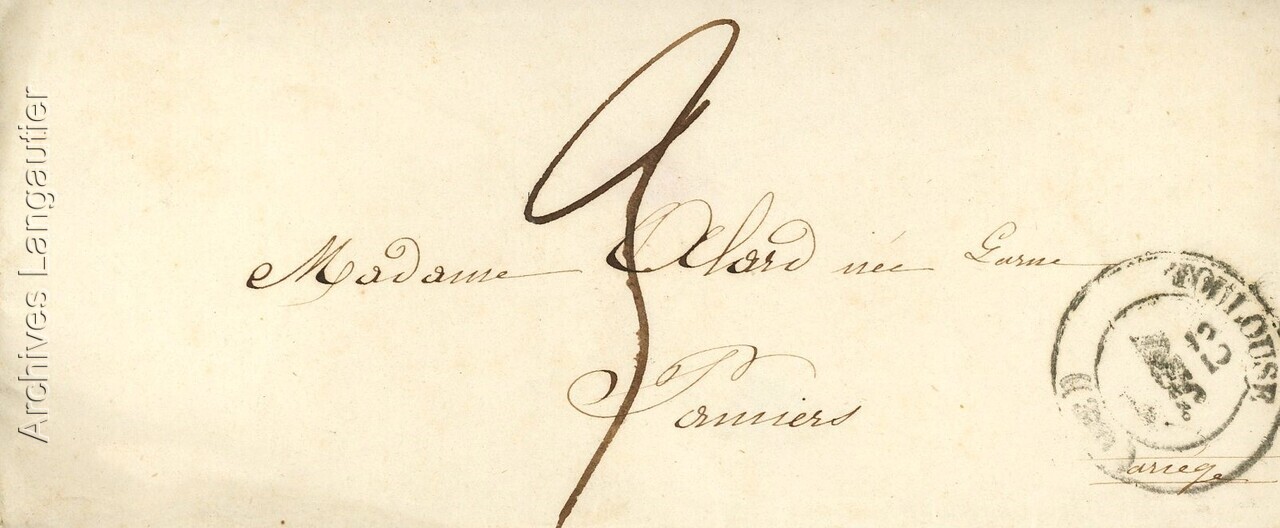 Archives Langautier
Madame Alard née Garne
Pamiers
ariége
TOULOUSE